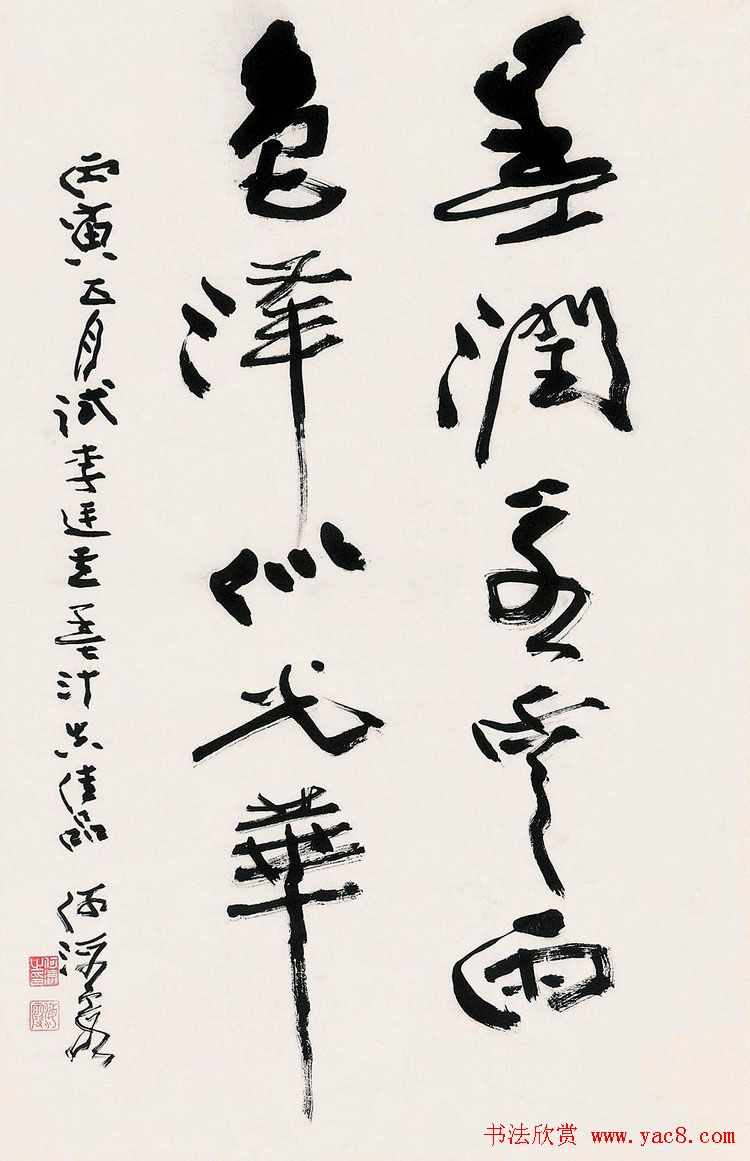 墨潤雲雨
色澤似光華
丙寅五月試李廷圭墨汁佳品 何海霞
海霞
书法欣赏 www.yac8.com